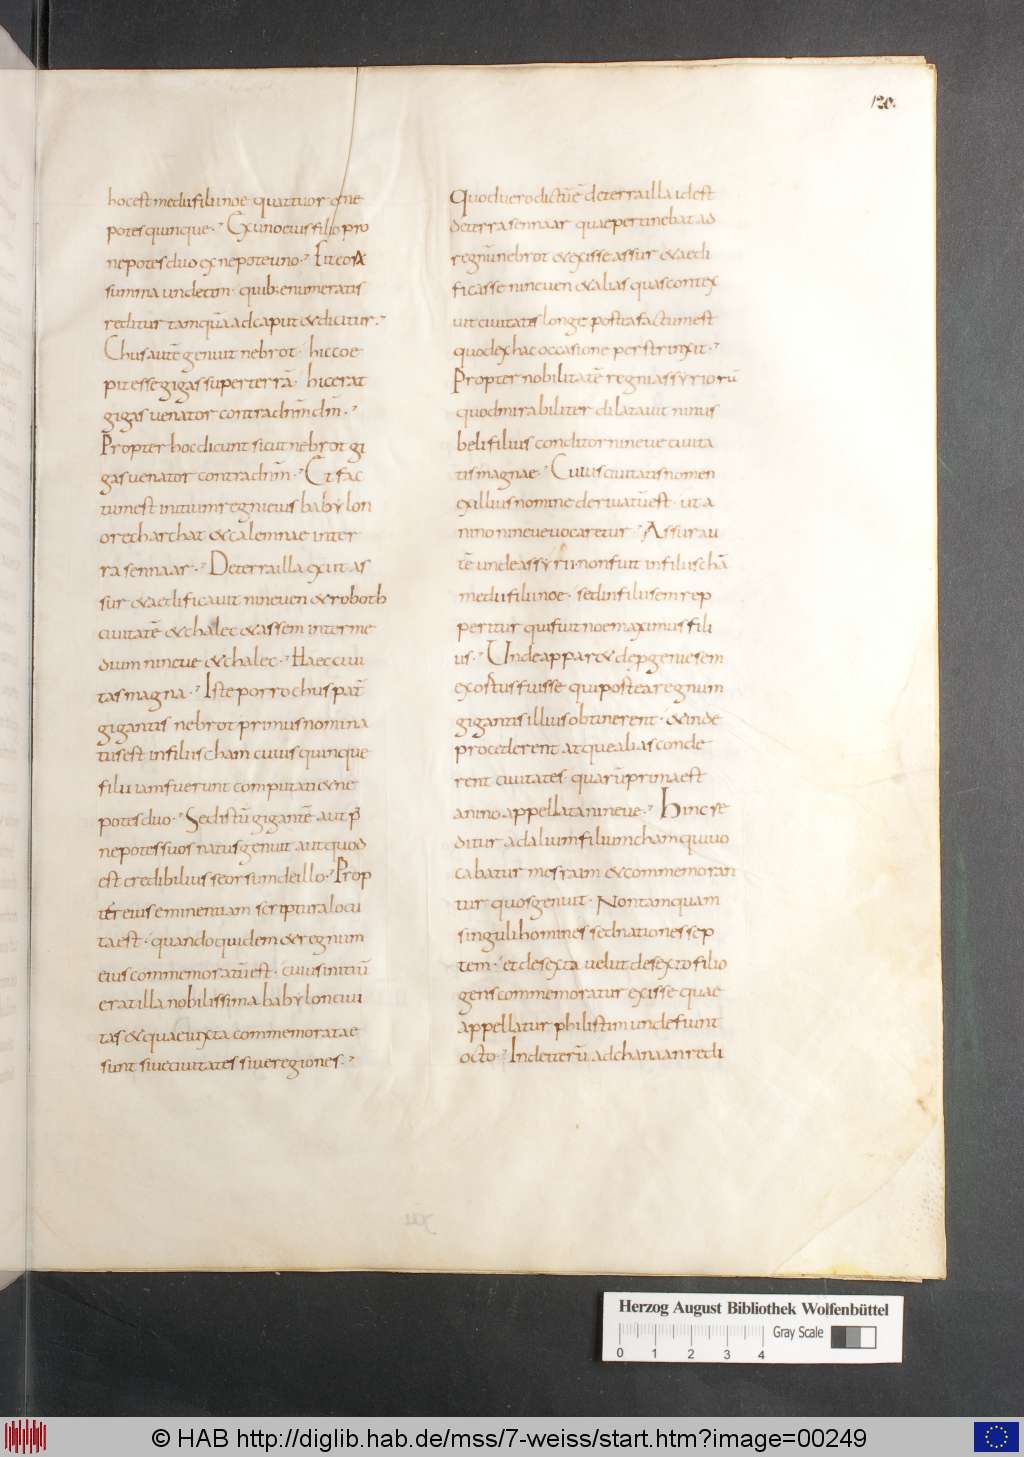 120.
hocest medii filii noe quattuor & ne
potes quinque. Ex uno eius filio pro
nepotes duo ex nepote uno. Fit eorū
summa undecim. quib; enumeratis
reditur tamquā ad caput & dicitur.
Chus autē genuit nebrot. hic coe
pit esse gigas super terrā. hic erat
gigas venator contra dnm dm.
Propter hoc dicunt sicut nebrot gi
gas venator contra dnm. Et fac
tum est initium regni eius babylon
orech archat & calem nae in ter
ra sennaar. De terra illa exiit as
sur & aedificavit nineven & roboth
civitatē & chalec & assem inter me
dium nineve & chalec. Haec civi
tas magna. Iste porro chus pat̄
gigantis nebrot primus nomina
tus est in filiis cham cuius quinque
filii iam fuerunt computati & ne
potes duo. Sed istū gigantē aut p̄
nepotes suos natus genuit aut quod
est credibilius seorsum de illo. Prop
ter eius eminentiam scriptura locu
ta est. quandoquidem & regnum
eius commemoratū est. cuius initiū
erat illa nobilissima babylon civi
tas & quae iuxta commemoratae
sunt sive civitates sive regiones.
Quod vero dictū ē de terra illa id est
de terra sennaar quae pertinebat ad
regnū nebrot & exisse assur & aedi
ficasse nineven & alias quas contex
uit civitates longe postea factum est
quod ex hac occasione perstrinxit.
Propter nobilitatē regni assyriorū
quod mirabiliter dilatavit ninus
beli filius conditor nineve civita
tis magnae. Cuius civitatis nomen
ex illius nomine derivatū est. ut a
nino nineve vocaretur. Assur au
tē unde assyrii non fuit in filiis chā
medii filii noe. sed in filiis sem rep
peritur qui fuit noe maximus fili
us. Unde appar& de p̄genie sem
exortus fuisse qui postea regnum
gigantis illius obtinerent. & inde
procederent atque alias conde
rent civitates. quarū prima est
a nino appellata nineve. Hinc re
ditur ad alium filium cham qui vo
cabatur mesraim & commemoran
tur quos genuit. Non tamquam
singuli homines sed nationes sep
tem. et de sexta velut de sexto filio
gens commemoratur exisse quae
appellatur philistim unde fiunt
octo. Inde iterū ad chanaan redi
Herzog August Bibliothek Wolfenbüttel
Gray Scale
0 1 2 3 4
© HAB http://diglib.hab.de/mss/7-weiss/start.htm?image=00249